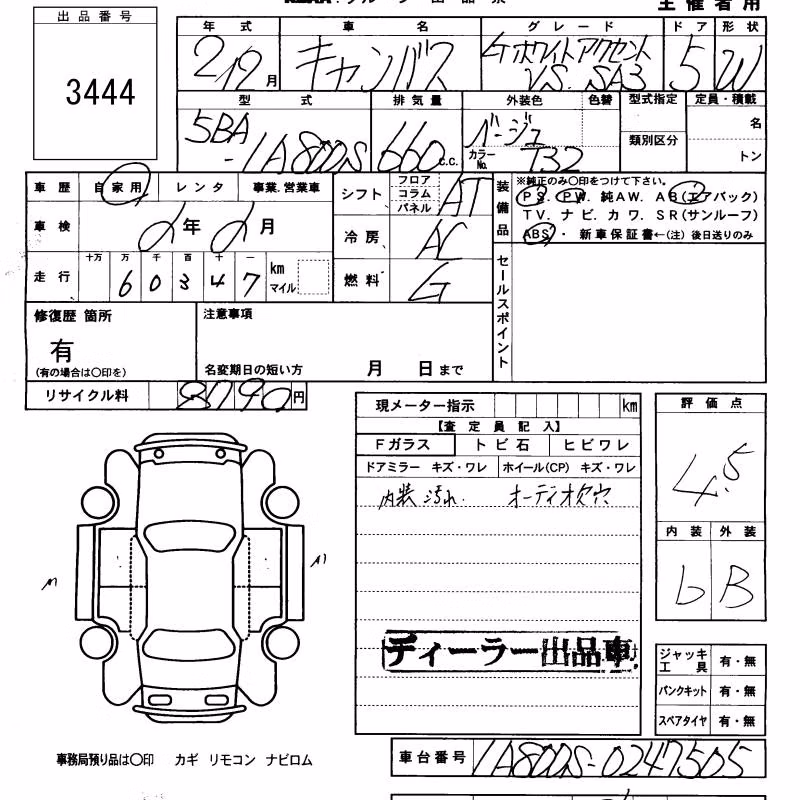 主催者用
出品番号
3444
年式 車名 グレード ドア 形状
2 / 9月 キャンバス Gホワイトアクセント VS. SA3 5 W
型式 排気量 外装色 色替 型式指定 定員・積載
5BA-LA800S 660 c.c. ベージュ 類別区分 名
カラーNo. T32 トン
車歴 自家用 レンタ 事業.営業車
シフト フロア コラム パネル AT
車検 年 月
冷房 AC
走行 十万 万 千 百 十 一
6 0 3 4 7 km マイル
燃料 G
装備品 ※純正のみ〇印をつけて下さい。
PS. PW. 純AW. AB(エアバック)
TV. ナビ. カワ. SR(サンルーフ)
ABS・ 新車保証書←(注) 後日送りのみ
セールスポイント
修復歴 箇所
有
(有の場合は〇印を)
注意事項
名変期日の短い方 月 日まで
リサイクル料 8790円
現メーター指示 km
【査定員記入】
Fガラス トビ石 ヒビワレ
ドアミラー キズ・ワレ ホイール(CP) キズ・ワレ
内装汚れ. オーディオ欠穴
ディーラー出品車
評価点
4.5
内装 外装
b B
ジャッキ工具 有・無
パンクキット 有・無
スペアタイヤ 有・無
事務局預り品は〇印 カギ リモコン ナビロム
車台番号 LA800S-0247505